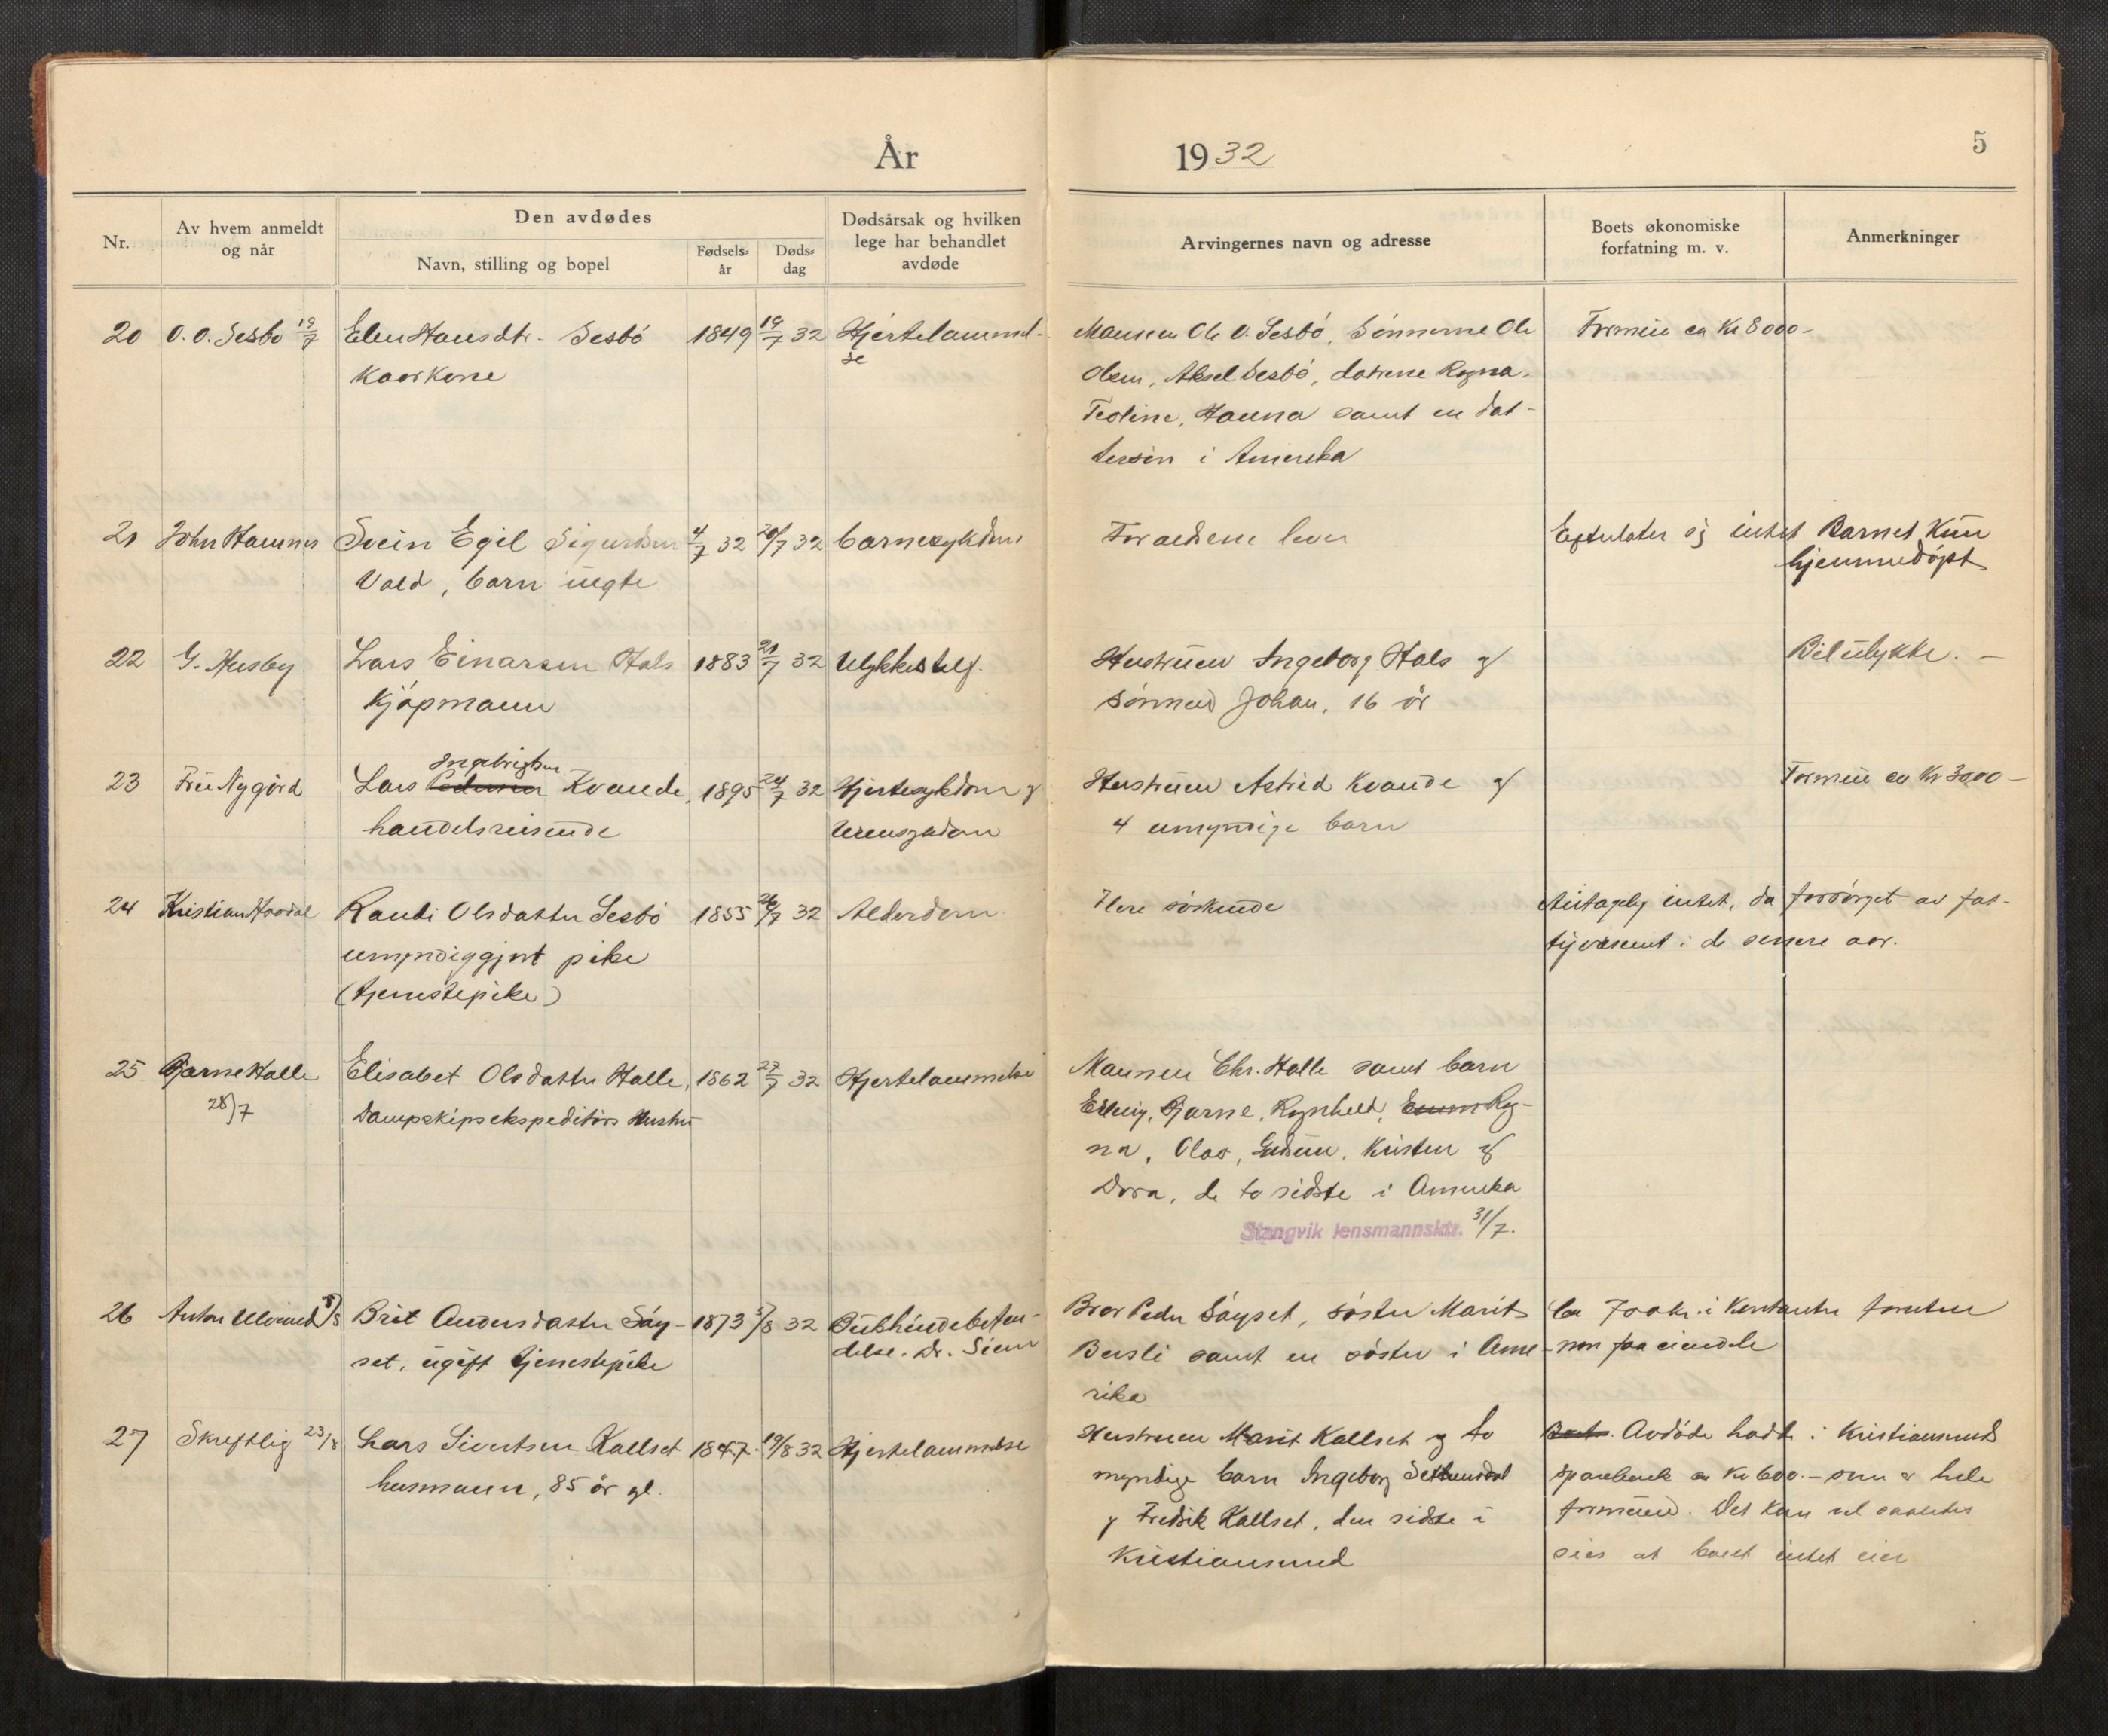 År 1932
5
Nr.
Av hvem anmeldt og når
Den avdødes
Navn, stilling og bopel
Fødsels-år
Døds-dag
Dødsårsak og hvilken lege har behandlet avdøde
Arvingernes navn og adresse
Boets økonomiske forfatning m. v.
Anmerkninger
20 O. O. Sesbø 19/7 Elen Hansdtr. Sesbö 1849 19/7 32 Hjertelammel-
se
kaarkone
Mannen Ole O. Sesbö, Sönnerne Ole
Olsen, Aksel Sesbö, døtrene Ragna
Teoline, Hanna samt en dat-
tersön i Amerika
Formue ca Kr 8000-
21 John Hamnes Svein Egil Sigurdsen 4/7 32 20/7 32 barnesykdom
Vald, barn uegte
Foreldrene lever
Efterlater sig intet Barnet kun
hjemmedöpt
22 G. Husby Lars Einarsen Hals 1883 21/7 32 Ulykkestilf.
Kjöpmann
Hustruen Ingeborg Hals og
sönnen Johan, 16 år
Bilulykke. —
23 Fru Nygård Lars Pedersen Ingebrigtsen Kvande, 1895 24/7 32 Hjertesykdom og
handelsreisende
Hustruen Astrid Kvande og
4 umyndige barn
Formue ca Kr 3000 —
24 Kristian Mordal Randi Olsdatter Sesbö 1855 26/7 32 Alderdom
umyndiggjort pike
(tjenestepike)
Flere söskende
Antagelig intet, da forsörget av fat-
tigvesenet i de senere aar.
25 Bjarne Halle Elisabet Olsdatter Halle, 1862 27/7 32 Hjertelammelse
28/7
Dampskipsekspeditörs Hustru
Mannen Chr. Halle samt barn
Erling, Bjarne, Ragnhild, Rag-
na, Olav, Gudrun, Kristen og
Dora, de to sidste i Amerika
Stangvik lensmannsktr. 31/7.
26 Anton 8/8 Brit Andersdatter Säy- 1873 5/8 32 Bukhindebeten-
delse. Dr.
set, ugift tjenestepike
Bror Peder Säyset, söster Marit
samt en söster i Ame-
rika
Ca 700 kr. i kontanter foruten
non faa eiendele
27 Skriftlig 23/8 Lars Sivertsen Kallset 1847. 19/8 32 Hjertelammelse
husmann, 85 år gl.
Hustruen Marit Kallset og to
myndige barn Ingeborg Settemsdal
og Fredrik Kallset, den sidste i
Kristiansund
Boet. Avdöde hadde i Kristiansunds
sparebank ca Kr 600.- som er hele
formuen. Det kan vel saaledes
sies at boet intet eier